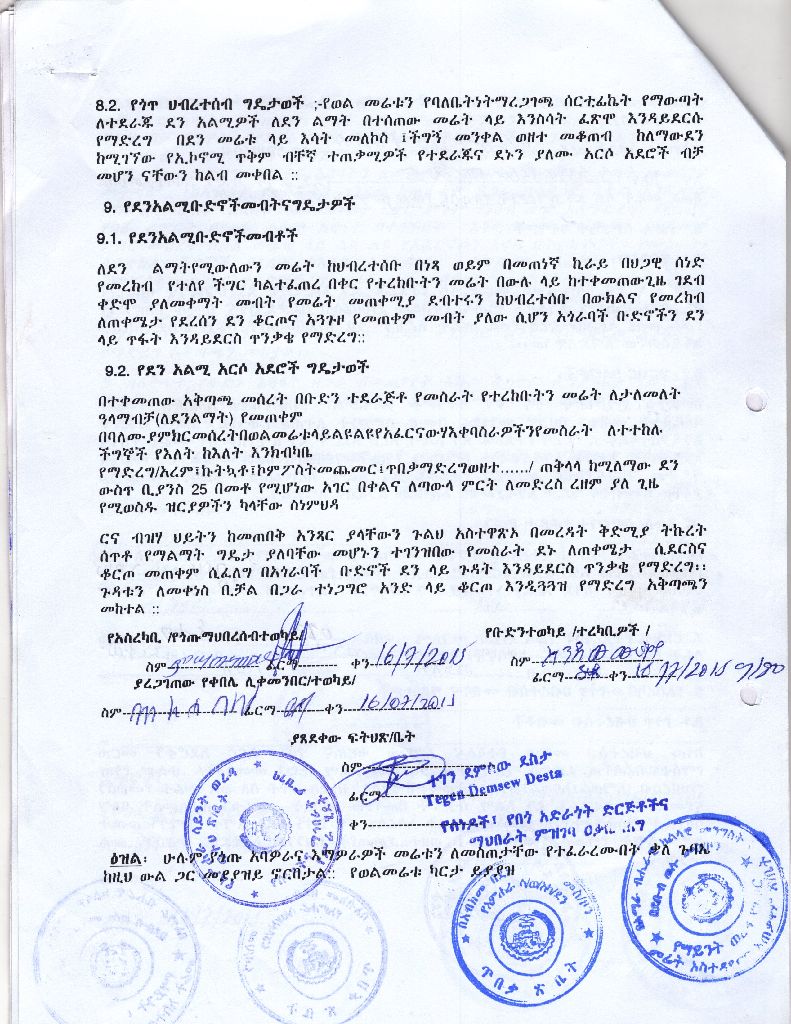 8.2. የጎጥ ህብረተሰብ ግዴታወች ;-የወል መሬቱን የባለቤትነትማረጋገጫ ሰርቲፊኬት የማውጣት
ለተደራጁ ደን አልሚዎች ለደን ልማት በተሰጠው መሬት ላይ እንስሳት ፈጽሞ እንዳይደርሱ
የማድረግ በደን መሬቱ ላይ እሳት መለኮስ ፤ችግኝ መንቀል ወዘተ መቆጠብ ከለማውደን
ከሚገኘው የኢኮኖሚ ጥቅም ብቸኛ ተጠቃሚዎች የተደራጁና ደኑን ያለሙ አርሶ አደሮች ብቻ
መሆን ናቸውን ከልብ መቀበል ::
9. የደንአልሚቡድኖችመብትናግዴታዎች
9.1. የደንአልሚቡድኖችመብቶች
ለደን ልማትየሚውለውን መሬት ከህብረተሰቡ በነጻ ወይም በመጠነኛ ኪራይ በህጋዊ ሰነድ
የመረከብ የተለየ ችግር ካልተፈጠረ በቀር የተረከቡትን መሬት በውሉ ላይ ከተቀመጠውጊዜ ገደብ
ቀድሞ ያለመቀማት መብት የመሬት መጠቀሚያ ደብተሩን ከህብረተሰቡ በውክልና የመረከብ
ለጠቀሜታ የደረሰን ደን ቆርጦና አጓጉዞ የመጠቀም መብት ያለው ሲሆን አጎራባች ቡድኖችን ደን
ላይ ጥፋት እንዳይደርስ ጥንቃቄ የማድረግ::
9.2. የደን አልሚ አርሶ አደሮች ግዴታወች
በተቀመጠው አቅጣጫ መሰረት በቡድን ተደራጅቶ የመስራት የተረከቡትን መሬት ለታለመለት
ዓላማብቻ(ለደንልማት) የመጠቀም
በባለሙያምክርመሰረትበወልመሬቱላይልዩልዩየአፈርናውሃእቀባስራዎችንየመስራት ለተተከሉ
ችግኞች የእለት ከእለት እንክብካቤ
የማድረግ/አረም፤ኩትኳቶ፤ኮምፖስትመጨመር፤ጥበቃማድረግወዘተ....../ ጠቅላላ ከሚለማው ደን
ውስጥ ቢያንስ 25 በመቶ የሚሆነው አገር በቀልና ለጣውላ ምርት ለመድረስ ረዘም ያለ ጊዜ
የሚወስዱ ዝርያዎችን ካላቸው ስነምህዳ
ርና ብዝሃ ህይትን ከመጠበቅ አንጻር ያላቸውን ጉልህ አስተዋጽኦ በመረዳት ቅድሚያ ትኩረት
ሰጥቶ የማልማት ግዴታ ያለባቸው መሆኑን ተገንዝበው የመስራት ደኑ ለጠቀሜታ ሲደርስና
ቆርጦ መጠቀም ሲፈለግ በአጎራባች ቡድኖች ደን ላይ ጉዳት እንዳይደርስ ጥንቃቄ የማድረግ፡፡
ጉዳቱን ለመቀነስ ቢቻል በጋራ ተነጋግሮ አንድ ላይ ቆርጦ እንዲጓጓዝ የማድረግ አቅጣጫን
መከተል ::
የአስረካቢ /የጎጡማህበረሰብተወካይ/ የቡድንተወካይ /ተረካቢዎች /
ስም ፊርማ---------- ቀን 16/7/2015 ስም
ፊርማ ቀን
ያረጋገጠው የቀበሌ ሊቀመንበር/ተወካይ/
ስም ፊርማ ቀን 16/07/2015
ያጸደቀው ፍትህጽ/ቤት
ስም
ተገን ደምሰው ደስታ
ፊርማ
Tegen Demsew Desta
ቀን
የሰነዶች፣ የበጎ አድራጎት ድርጅቶችና
ማህበራት ምዝገባ ዐቃቤ ሕግ
ዕዝል፡ ሁሉም የጎጡ አባዎራና እማዎራዎች መሬቱን ለመስጠታቸው የተፈራረሙበት ቃለ ጉባኤ
ከዚህ ውል ጋር መያያዝይ ኖርበታል:: የወልመሬቱ ካርታ ይያያዝ
ጥበቃ ጽ ቤት